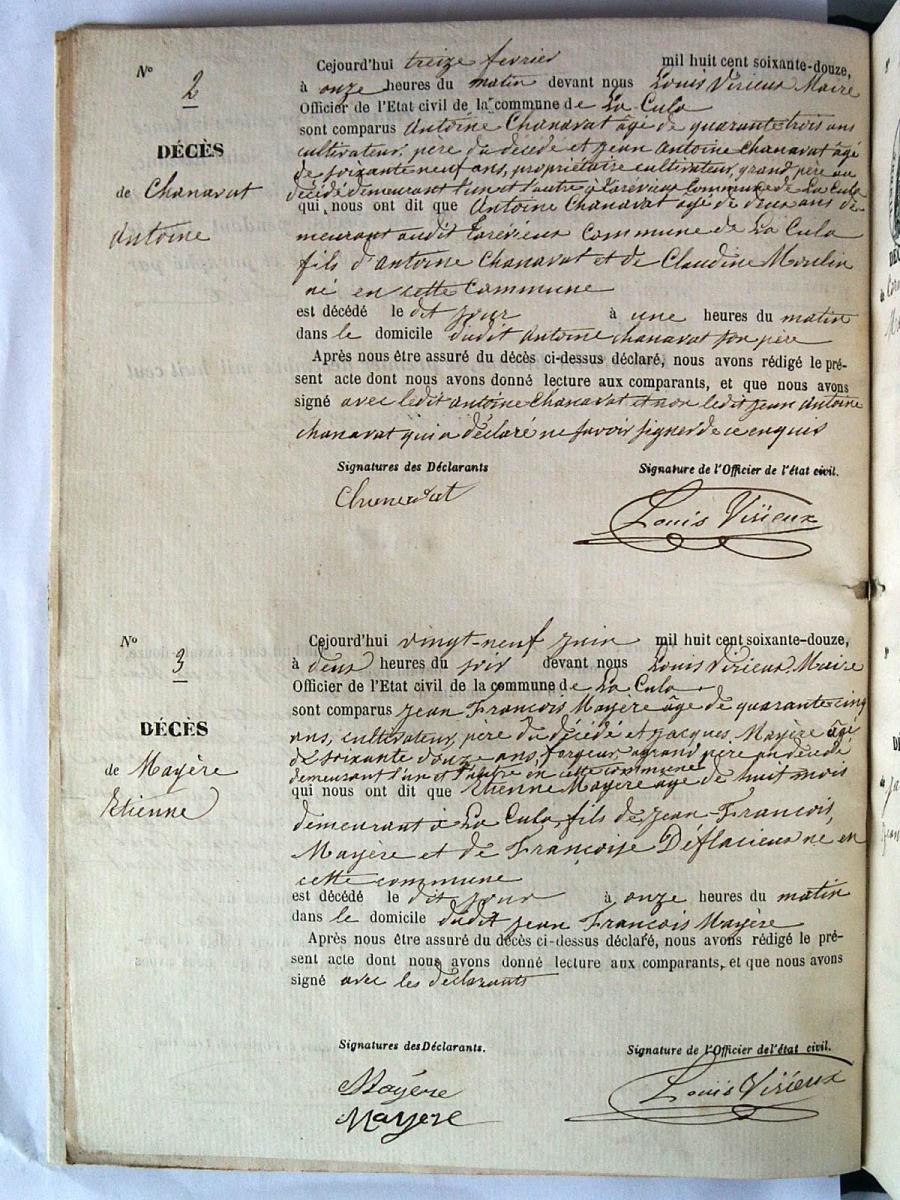 N° 2
DÉCÈS
de Chanavat
Antoine
Cejourd'hui treize fevrier mil huit cent soixante-douze,
à onze heures du matin devant nous Louis Virieux Maire
Officier de l'Etat civil de la commune de La Cula
sont comparus Antoine Chanavat âgé de quarante trois ans
cultivateur, père du décédé et Jean Antoine Chanavat âgé
de soixante neuf ans, propriétaire cultivateur, grand père au
décédé demeurant l'un et l'autre à commune de La Cula
qui nous ont dit que Antoine Chanavat âgé de deux ans de-
meurant audit commune de La Cula
fils d'Antoine Chanavat et de Claudine Moulin
né en cette commune
est décédé le dit jour à une heures du matin
dans le domicile dudit Antoine Chanavat son père
Après nous être assuré du décès ci-dessus déclaré, nous avons rédigé le pré-
sent acte dont nous avons donné lecture aux comparants, et que nous avons
signé avec ledit Antoine Chanavat et non ledit Jean Antoine
Chanavat qui a déclaré ne savoir signer de ce enquis
Signatures des Déclarants
Signature de l'Officier de l'état civil.
Louis Virieux
N° 3
DÉCÈS
de Mayère
Etienne
Cejourd'hui vingt-neuf juin mil huit cent soixante-douze,
à deux heures du soir devant nous Louis Virieux Maire
Officier de l'Etat civil de la commune de La Cula
sont comparus Jean François Mayère âgé de quarante cinq
ans, cultivateur, père du décédé et Jacques Mayère âgé
de soixante douze ans, forgeur, grand père au décédé
demeurant l'un et l'autre en cette commune
qui nous ont dit que Etienne Mayère âgé de huit mois
demeurant à La Cula, fils de Jean-François,
Mayère et de Françoise Déflacieux né en
cette commune
est décédé le dit jour à onze heures du matin
dans le domicile dudit Jean François Mayère
Après nous être assuré du décès ci-dessus déclaré, nous avons rédigé le pré-
sent acte dont nous avons donné lecture aux comparants, et que nous avons
signé avec les déclarants
Signatures des Déclarants.
Signature de l'Officier de l'état civil.
Mayère
Mayere
Louis Virieux